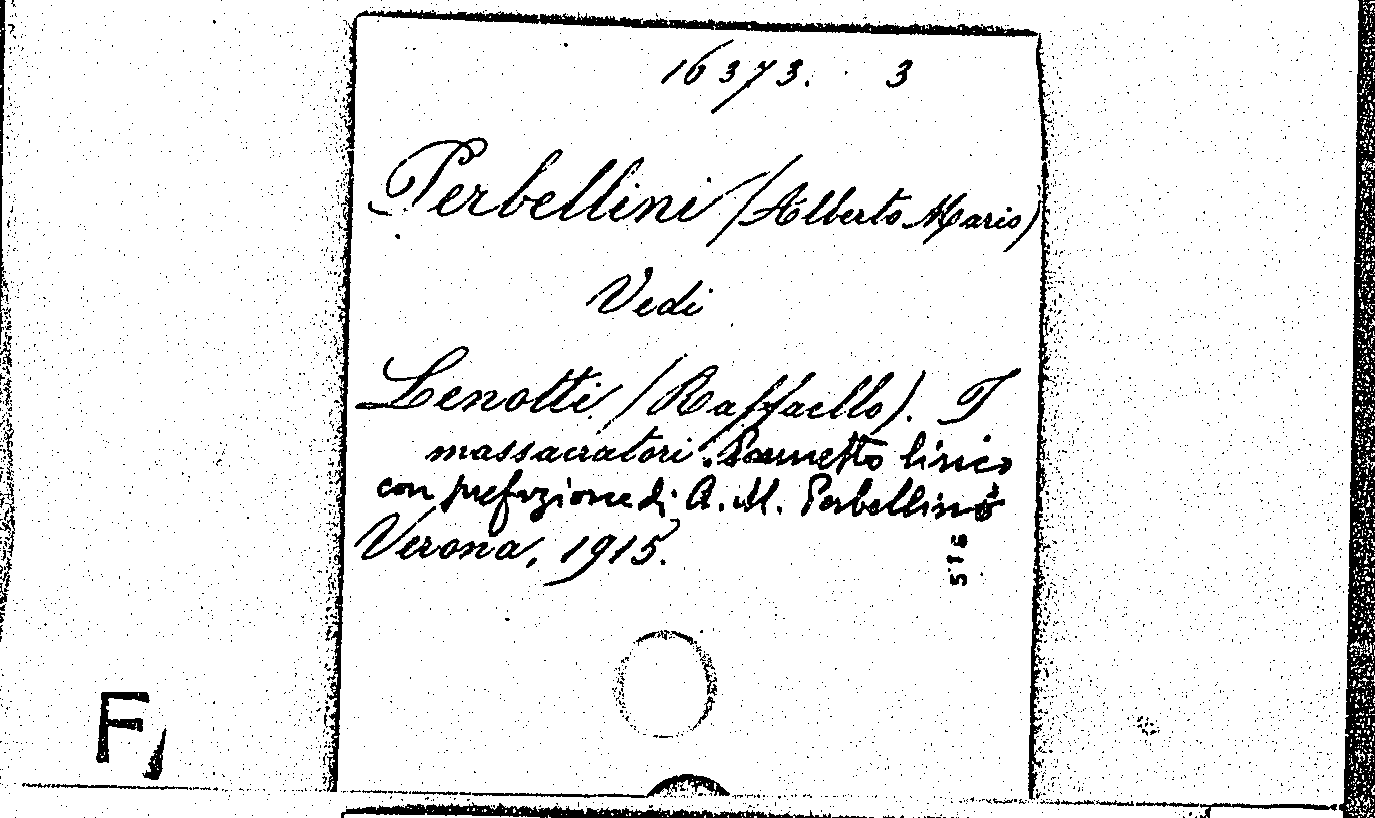 16373. 3
Perbellini (Alberto Mario)
Vedi
Lenotti (Raffaello). I
massacratori. Poemetto lirico
con prefazione di A. M. Perbellini
Verona, 1915.
516
F